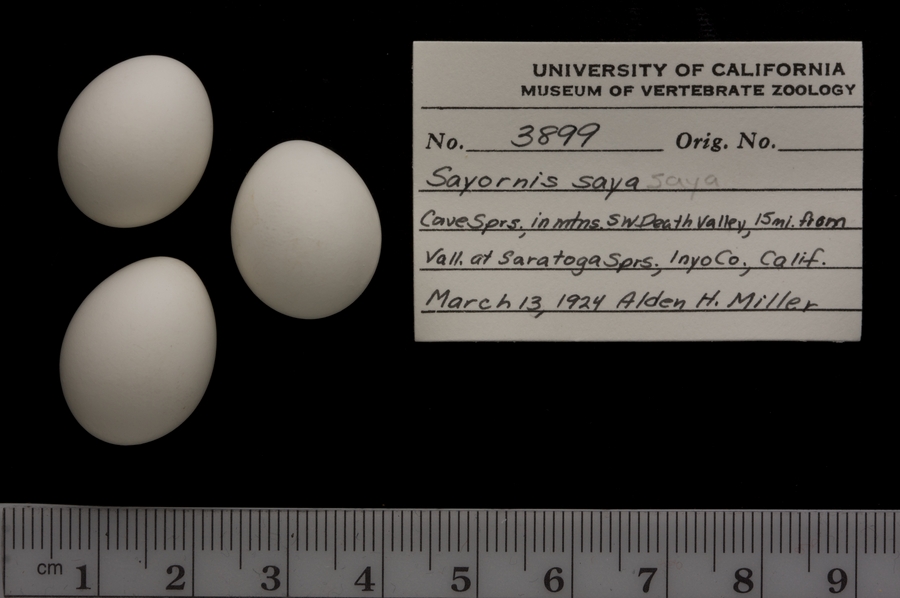 UNIVERSITY OF CALIFORNIA
MUSEUM OF VERTEBRATE ZOOLOGY
No. 3899 Orig. No.
Sayornis saya saya
Cave Sprs., in mtns. SW Death Valley, 15 mi. from
Vall. at Saratoga Sprs., Inyo Co., Calif.
March 13, 1924 Alden H. Miller
cm 1 2 3 4 5 6 7 8 9